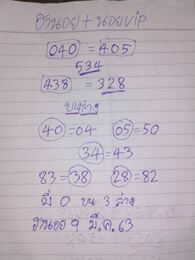 ฮานอย + นอยvip
040 = 405
534
438 = 328
บน ล่าง
40 = 04 05 = 50
34 = 43
83 = 38 28 = 82
มี 0 บน 3 ล่าง
ฮานอย 9 มี.ค. 63